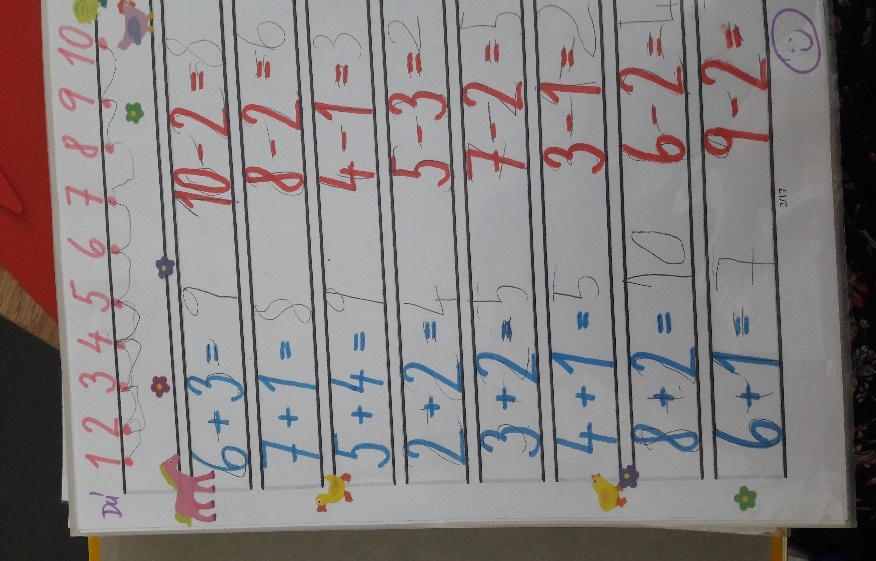 Dú
1 2 3 4 5 6 7 8 9 10
6 + 3 = 9 10 - 2 = 8
7 + 1 = 8 8 - 2 = 6
5 + 4 = 9 4 - 1 = 3
2 + 2 = 4 5 - 3 = 2
3 + 2 = 5 7 - 2 = 5
4 + 1 = 5 3 - 1 = 2
8 + 2 = 10 6 - 2 = 4
6 + 1 = 7 9 - 2 =
2/17